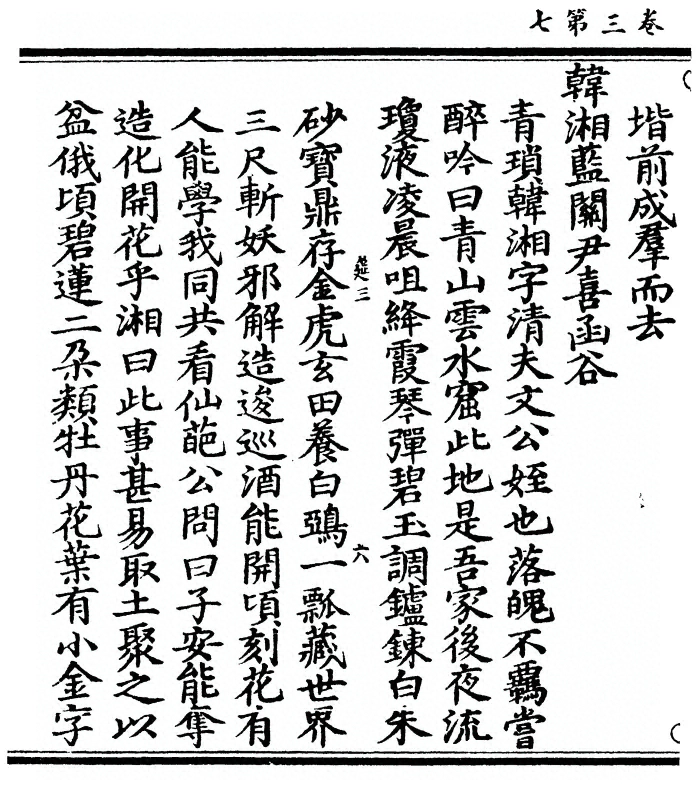 卷三第七
堦前成羣而去
韓湘藍關尹喜函谷
青瑣韓湘字清夫文公姪也落魄不羈嘗
醉吟曰青山雲水窟此地是吾家後夜流
瓊液凌晨咀絳霞琴彈碧玉調鑪鍊白朱
筵三
六
砂寶鼎存金虎玄田養白鵶一瓢藏世界
三尺斬妖邪解造逡巡酒能開頃刻花有
人能學我同共看仙葩公問曰子安能奪
造化開花乎湘曰此事甚易取土聚之以
盆俄頃碧蓮二朶類牡丹花葉有小金字